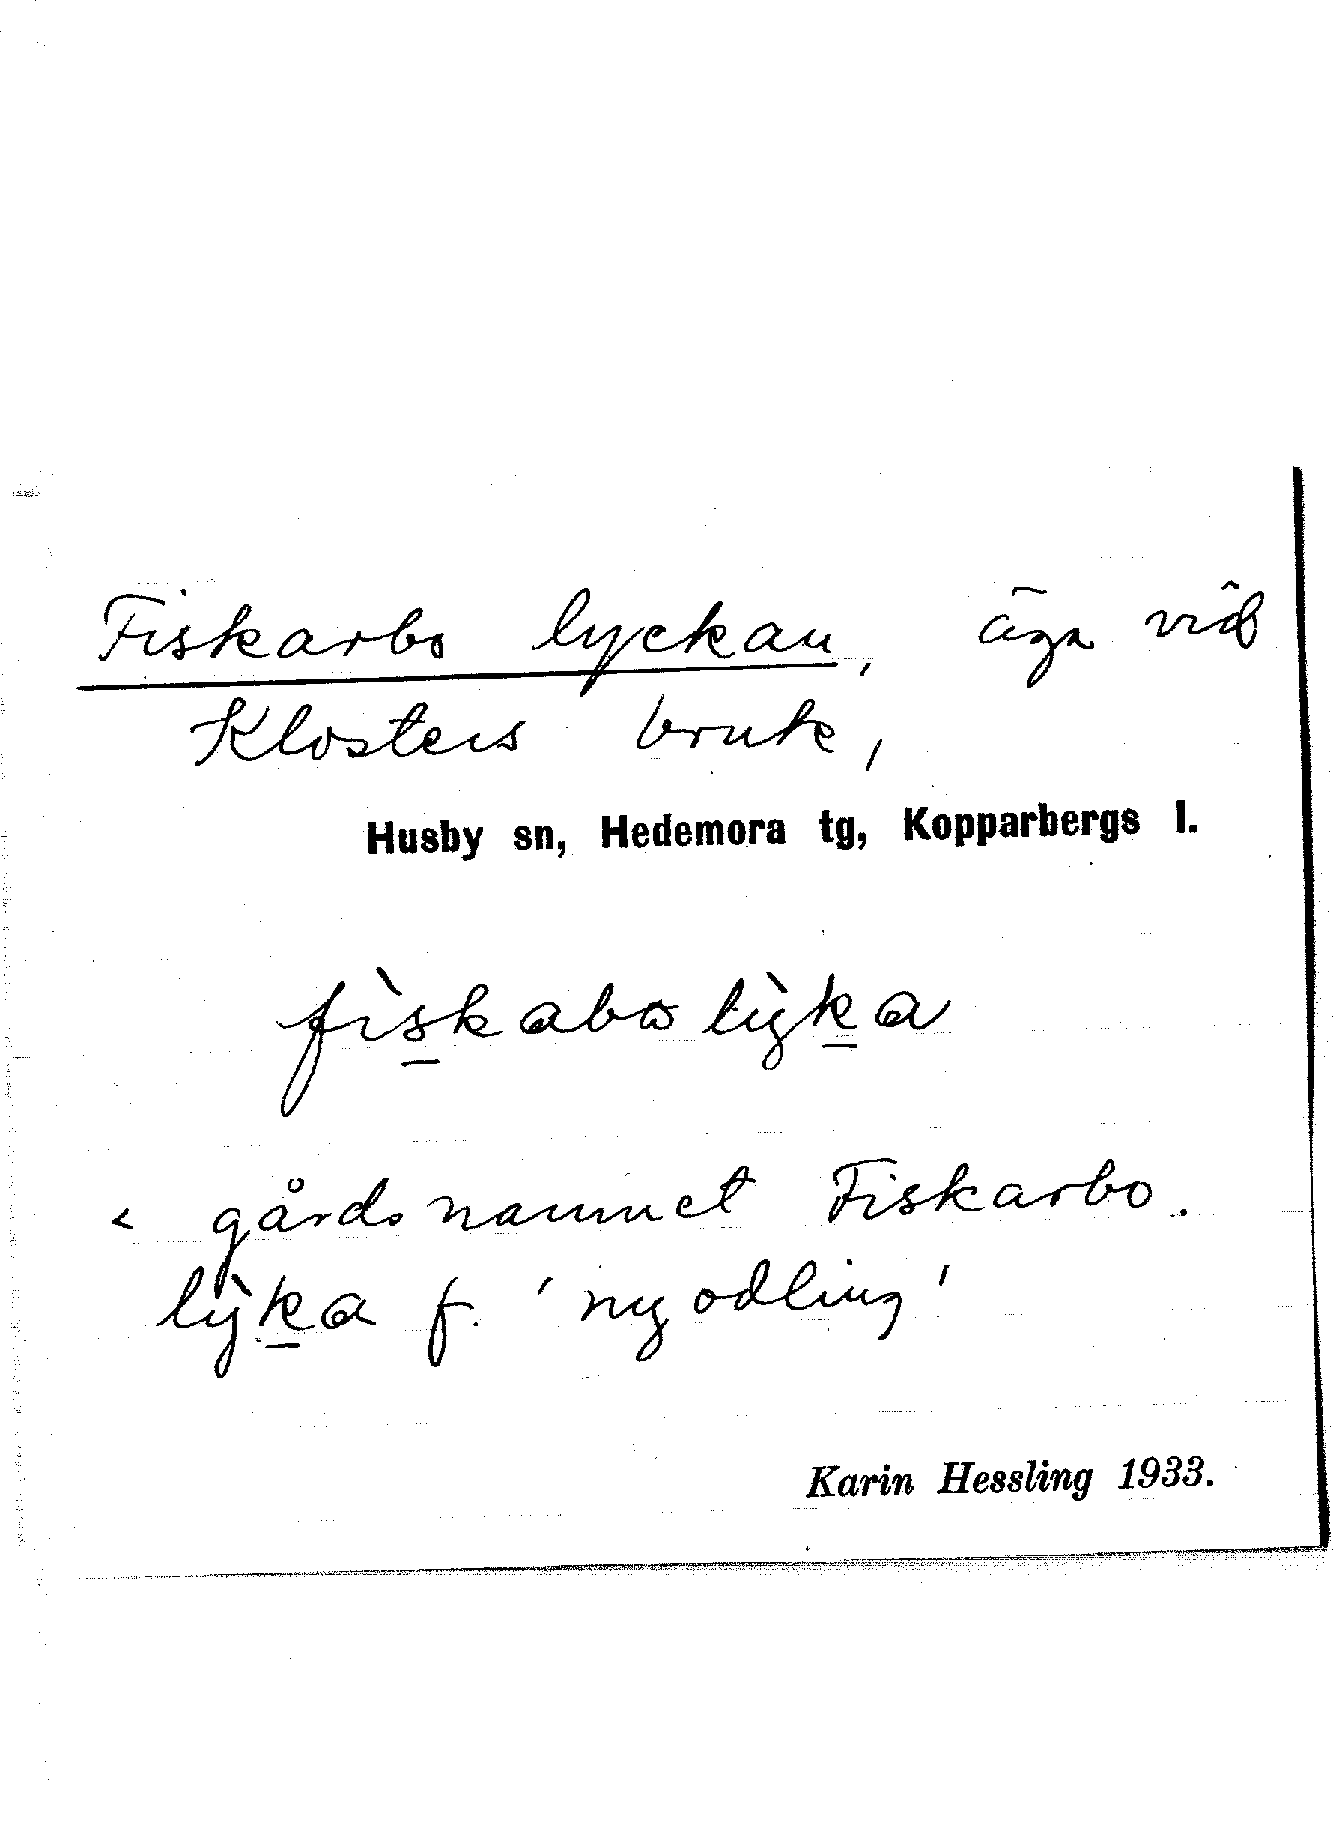 Fiskarbo lyckan, äga vid
Klosters bruk,
Husby sn, Hedemora tg, Kopparbergs l.
fìs̲kabo lỳk̲a
< gårdsnamnet Fiskarbo.
lỳk̲a f. 'nyodling'
Karin Hessling 1933.